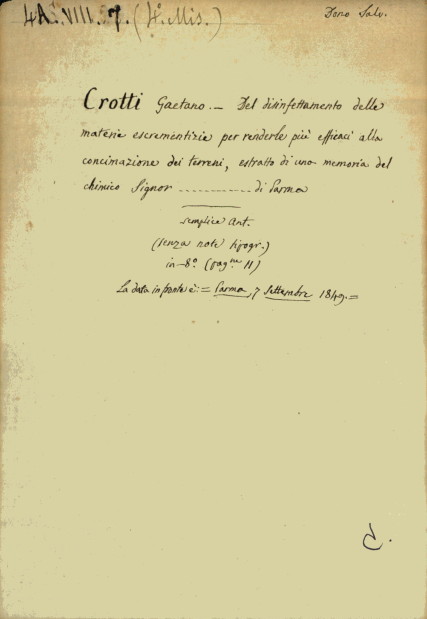 4A. VIII. 7. (4º. Mis.)
Dono Salv.
Crotti Gaetano. — Del disinfettamento delle
materie escrementizie per renderle più efficaci alla
concimazione dei terreni, estratto di una memoria del
chimico Signor ............... di Parma
semplice ant.
(senza note tipogr.)
in-8º (pag.ne 11)
La data in fronte è: = Parma, 7 Settembre 1849. =
C.